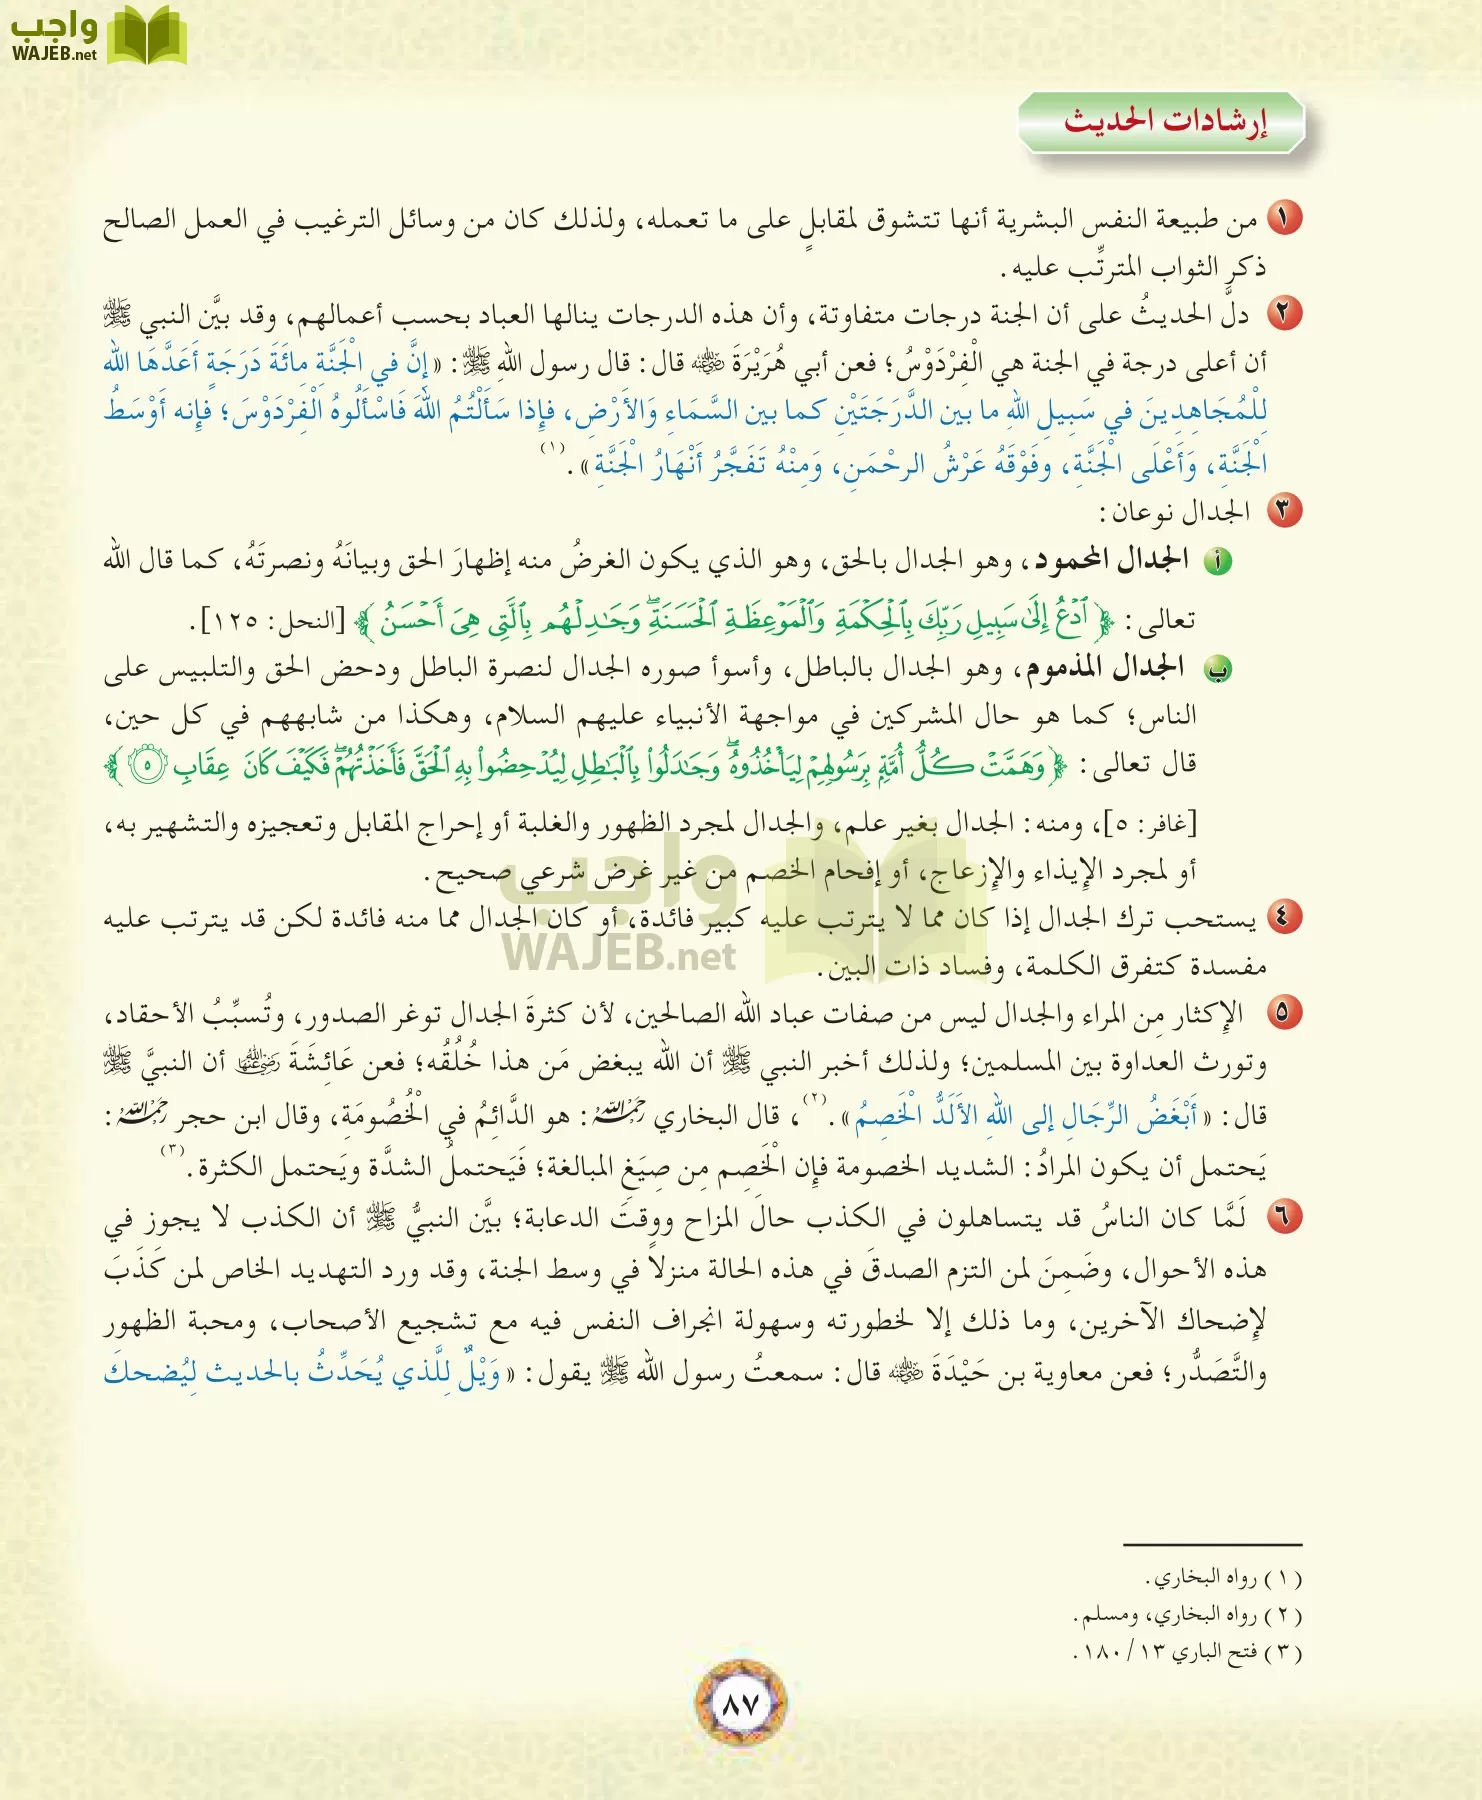 واجب
WAJEB.net
إرشادات الحديث
١ من طبيعة النفس البشرية أنها تتشوق لمقابلٍ على ما تعمله، ولذلك كان من وسائل الترغيب في العمل الصالح
ذكر الثواب المترتِّب عليه.
٢ دلَّ الحديثُ على أن الجنة درجات متفاوتة، وأن هذه الدرجات ينالها العباد بحسب أعمالهم، وقد بيَّن النبي ﷺ
أن أعلى درجة في الجنة هي الْفِرْدَوْسُ؛ فعن أبي هُرَيْرَةَ رضي الله عنه قال: قال رسول اللهِ ﷺ: «إنَّ في الْجَنَّةِ مِائَةَ دَرَجَةٍ أَعَدَّهَا الله
لِلْمُجَاهِدِينَ في سَبِيلِ اللهِ ما بين الدَّرَجَتَيْنِ كما بين السَّمَاءِ وَالأَرْضِ، فَإِذا سَأَلْتُمُ اللهَ فَاسْأَلُوهُ الْفِرْدَوْسَ؛ فإنه أَوْسَطُ
الْجَنَّةِ، وَأَعْلَى الْجَنَّةِ، وفَوْقَهُ عَرْشُ الرحْمَنِ، وَمِنْهُ تَفَجَّرُ أَنْهَارُ الْجَنَّةِ».(١)
٣ الجدال نوعان:
أ الجدال المحمود، وهو الجدال بالحق، وهو الذي يكون الغرضُ منه إظهارَ الحق وبيانَهُ ونصرتَهُ، كما قال الله
تعالى: ﴿ٱدۡعُ إِلَىٰ سَبِيلِ رَبِّكَ بِٱلۡحِكۡمَةِ وَٱلۡمَوۡعِظَةِ ٱلۡحَسَنَةِۖ وَجَٰدِلۡهُم بِٱلَّتِي هِيَ أَحۡسَنُ﴾ [النحل: ١٢٥].
ب الجدال المذموم، وهو الجدال بالباطل، وأسوأ صوره الجدال لنصرة الباطل ودحض الحق والتلبيس على
الناس؛ كما هو حال المشركين في مواجهة الأنبياء عليهم السلام، وهكذا من شابههم في كل حين،
قال تعالى: ﴿وَهَمَّتۡ كُلُّ أُمَّةِۭ بِرَسُولِهِمۡ لِيَأۡخُذُوهُۖ وَجَٰدَلُواْ بِٱلۡبَٰطِلِ لِيُدۡحِضُواْ بِهِ ٱلۡحَقَّ فَأَخَذۡتُهُمۡۖ فَكَيۡفَ كَانَ عِقَابِ ٥﴾
[غافر: ٥]، ومنه: الجدال بغير علم، والجدال لمجرد الظهور والغلبة أو إحراج المقابل وتعجيزه والتشهير به،
أو لمجرد الإيذاء والإزعاج، أو إفحام الخصم من غير غرض شرعي صحيح.
٤ يستحب ترك الجدال إذا كان مما لا يترتب عليه كبير فائدة، أو كان الجدال مما منه فائدة لكن قد يترتب عليه
مفسدة كتفرق الكلمة، وفساد ذات البين.
واجب
WAJEB.net
٥ الإكثار مِن المراء والجدال ليس من صفات عباد الله الصالحين، لأن كثرةَ الجدال توغر الصدور، وتُسبِّبُ الأحقاد،
وتورث العداوة بين المسلمين؛ ولذلك أخبر النبي ﷺ أن الله يبغض مَن هذا خُلُقُه؛ فعن عَائِشَةَ رضي الله عنها أن النبيَّ ﷺ
قال: «أَبْغَضُ الرِّجَالِ إلى اللهِ الأَلَدُّ الْخَصِمُ».(٢)، قال البخاري رحمه الله: هو الدَّائِمُ في الْخُصُومَةِ، وقال ابن حجر رحمه الله:
يَحتمل أن يكون المرادُ: الشديد الخصومة فإن الْخَصِم مِن صِيَغِ المبالغة؛ فَيَحتملُ الشدَّة ويَحتمل الكثرة.(٣)
٦ لَمَّا كان الناسُ قد يتساهلون في الكذب حالَ المزاح ووقتَ الدعابة؛ بيَّن النبيُّ ﷺ أن الكذب لا يجوز في
هذه الأحوال، وضَمِنَ لمن التزم الصدقَ في هذه الحالة منزلاً في وسط الجنة، وقد ورد التهديد الخاص لمن كَذَبَ
لإضحاك الآخرين، وما ذلك إلا لخطورته وسهولة انجراف النفس فيه مع تشجيع الأصحاب، ومحبة الظهور
والتَّصَدُّر؛ فعن معاوية بن حَيْدَةَ رضي الله عنه قال: سمعتُ رسول الله ﷺ يقول: «وَيْلٌ لِلَّذي يُحَدِّثُ بالحديث لِيُضحكَ
(١) رواه البخاري.
(٢) رواه البخاري، ومسلم.
(٣) فتح الباري ١٣/ ١٨٠.
٨٧